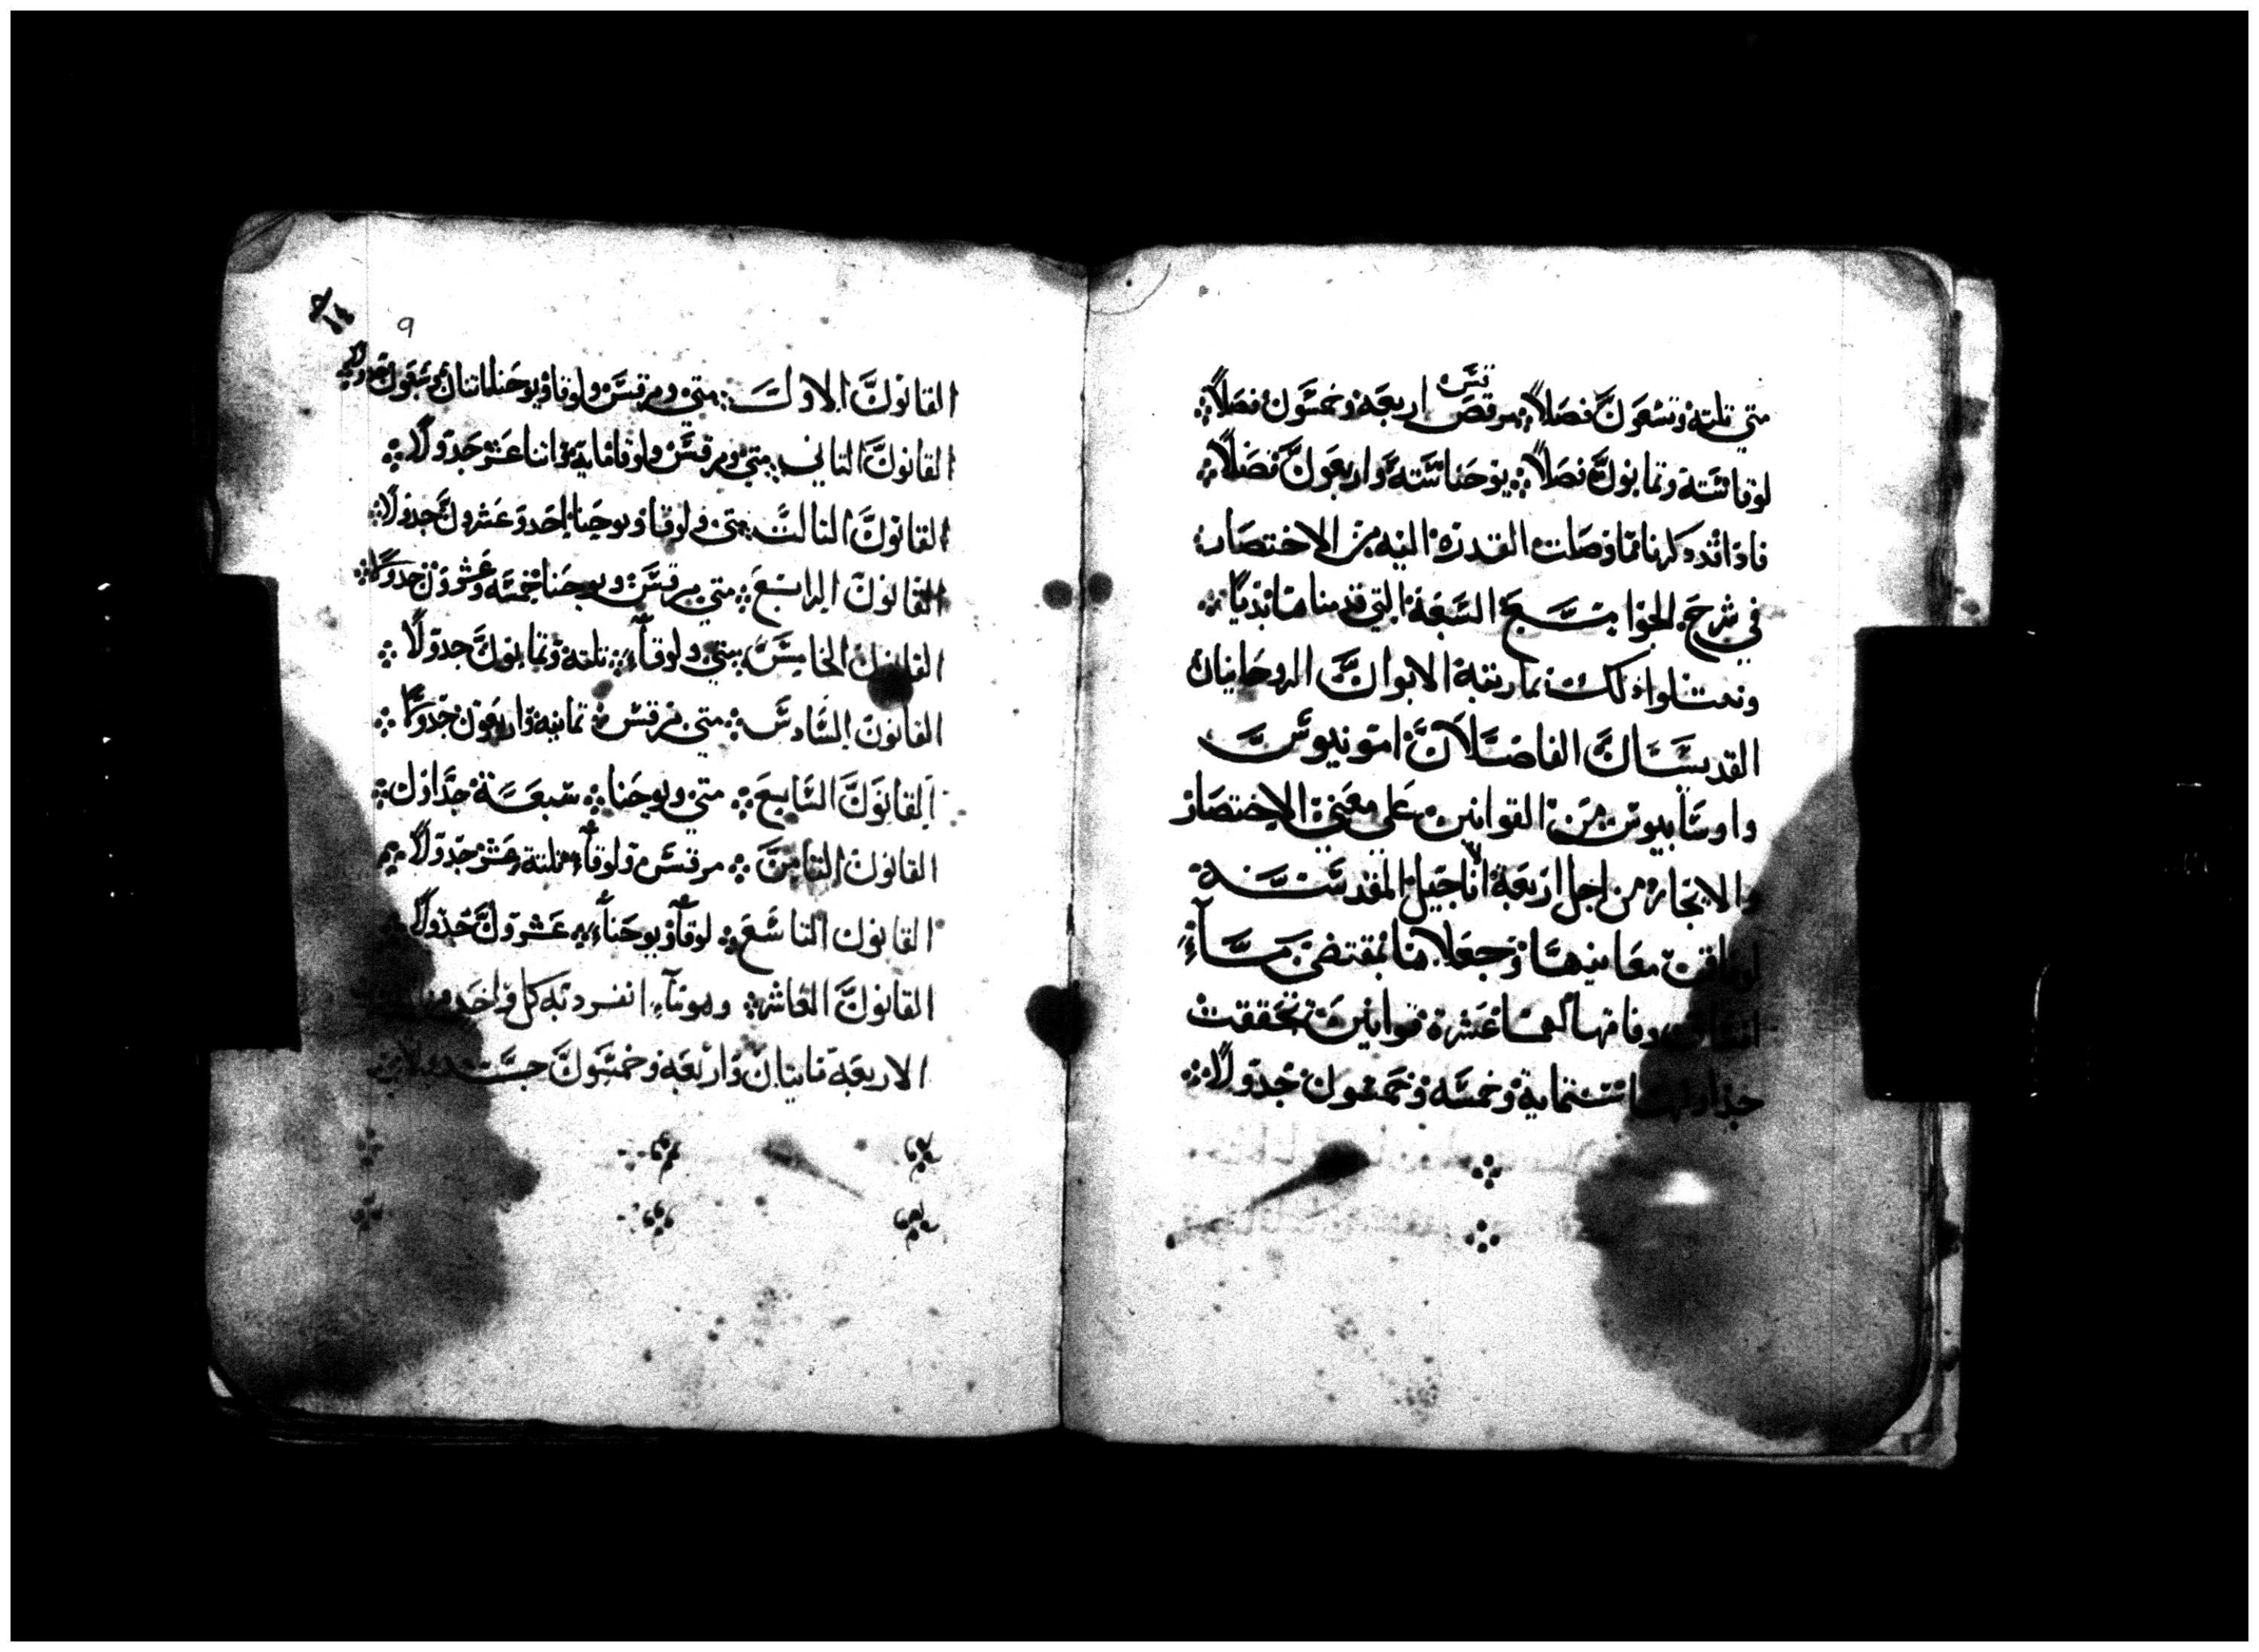 متي تلته وتسعون فصلاً مرقص اربعه وخمسون فصلاً
قس
لوقا سته وتمانون فصلاً يوحنا سته واربعون فصلاً
فاد اتدد كرنا مما وصلت القدره اليه من الاختصار
في شرح الجوامع السبعة التي قدمناها بديا
ونحتلوا دلك بما رتبه الابوان الروحانيان
القديسان الفاضلان امونيوس
واوسابيوس من القوانين علي معني الاختصار
والايجاز من اجل اربعة الاناجيل المقدسة
معانيها وجعلاها بمقتضي مسا
عشرة قوانين تحققت
جداولها ستمايه وخمسه وخمسون جدولاً
٩
القانون الاول متي ومرقس ولوقا ويوحنا اتنان وسبعون جدولاً
القانون التاني متي ومرقس ولوقا مايه واتنا عشر جدولاً
القانون التالت متي ولوقا ويوحنا احد وعشرون جدولاً
القانون الرابع متي مرقس ويوحنا خمسه وعشرون جدولاً
القانون الخامس متي ولوقا تلته وتمانون جدولاً
القانون السادس متي مرقس تمانيه واربعون جدولاً
القانون السابع متي ويوحنا سبعة جداول
القانون التامن مرقس ولوقا تلتة عشر جدولاً
القانون التاسع لوقا ويوحنا عشرون جدولاً
القانون العاشر وهو ما انفرد به كل واحد من
الاربعه مايتان واربعه وخمسون جدولاً